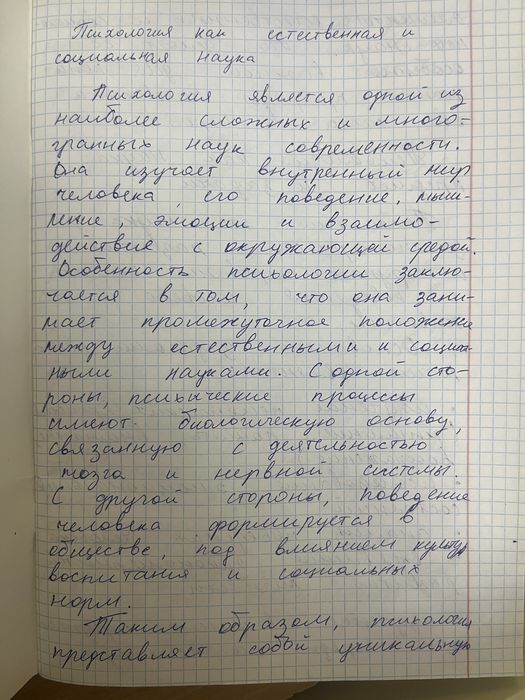 Психология как естественная и
социальная наука
Психология является одной из
наиболее сложных и много-
гранных наук современности.
Она изучает внутренний мир
человека, его поведение, мыш-
ление, эмоции и взаимо-
действие с окружающей средой.
Особенность психологии заклю-
чается в том, что она зани-
мает промежуточное положение
между естественными и социаль-
ными науками. С одной сто-
роны, психические процессы
имеют биологическую основу,
связанную с деятельностью
мозга и нервной системы.
С другой стороны, поведение
человека формируется в
обществе, под влиянием культуры
воспитания и социальных
норм.
Таким образом, психология
представляет собой уникальную